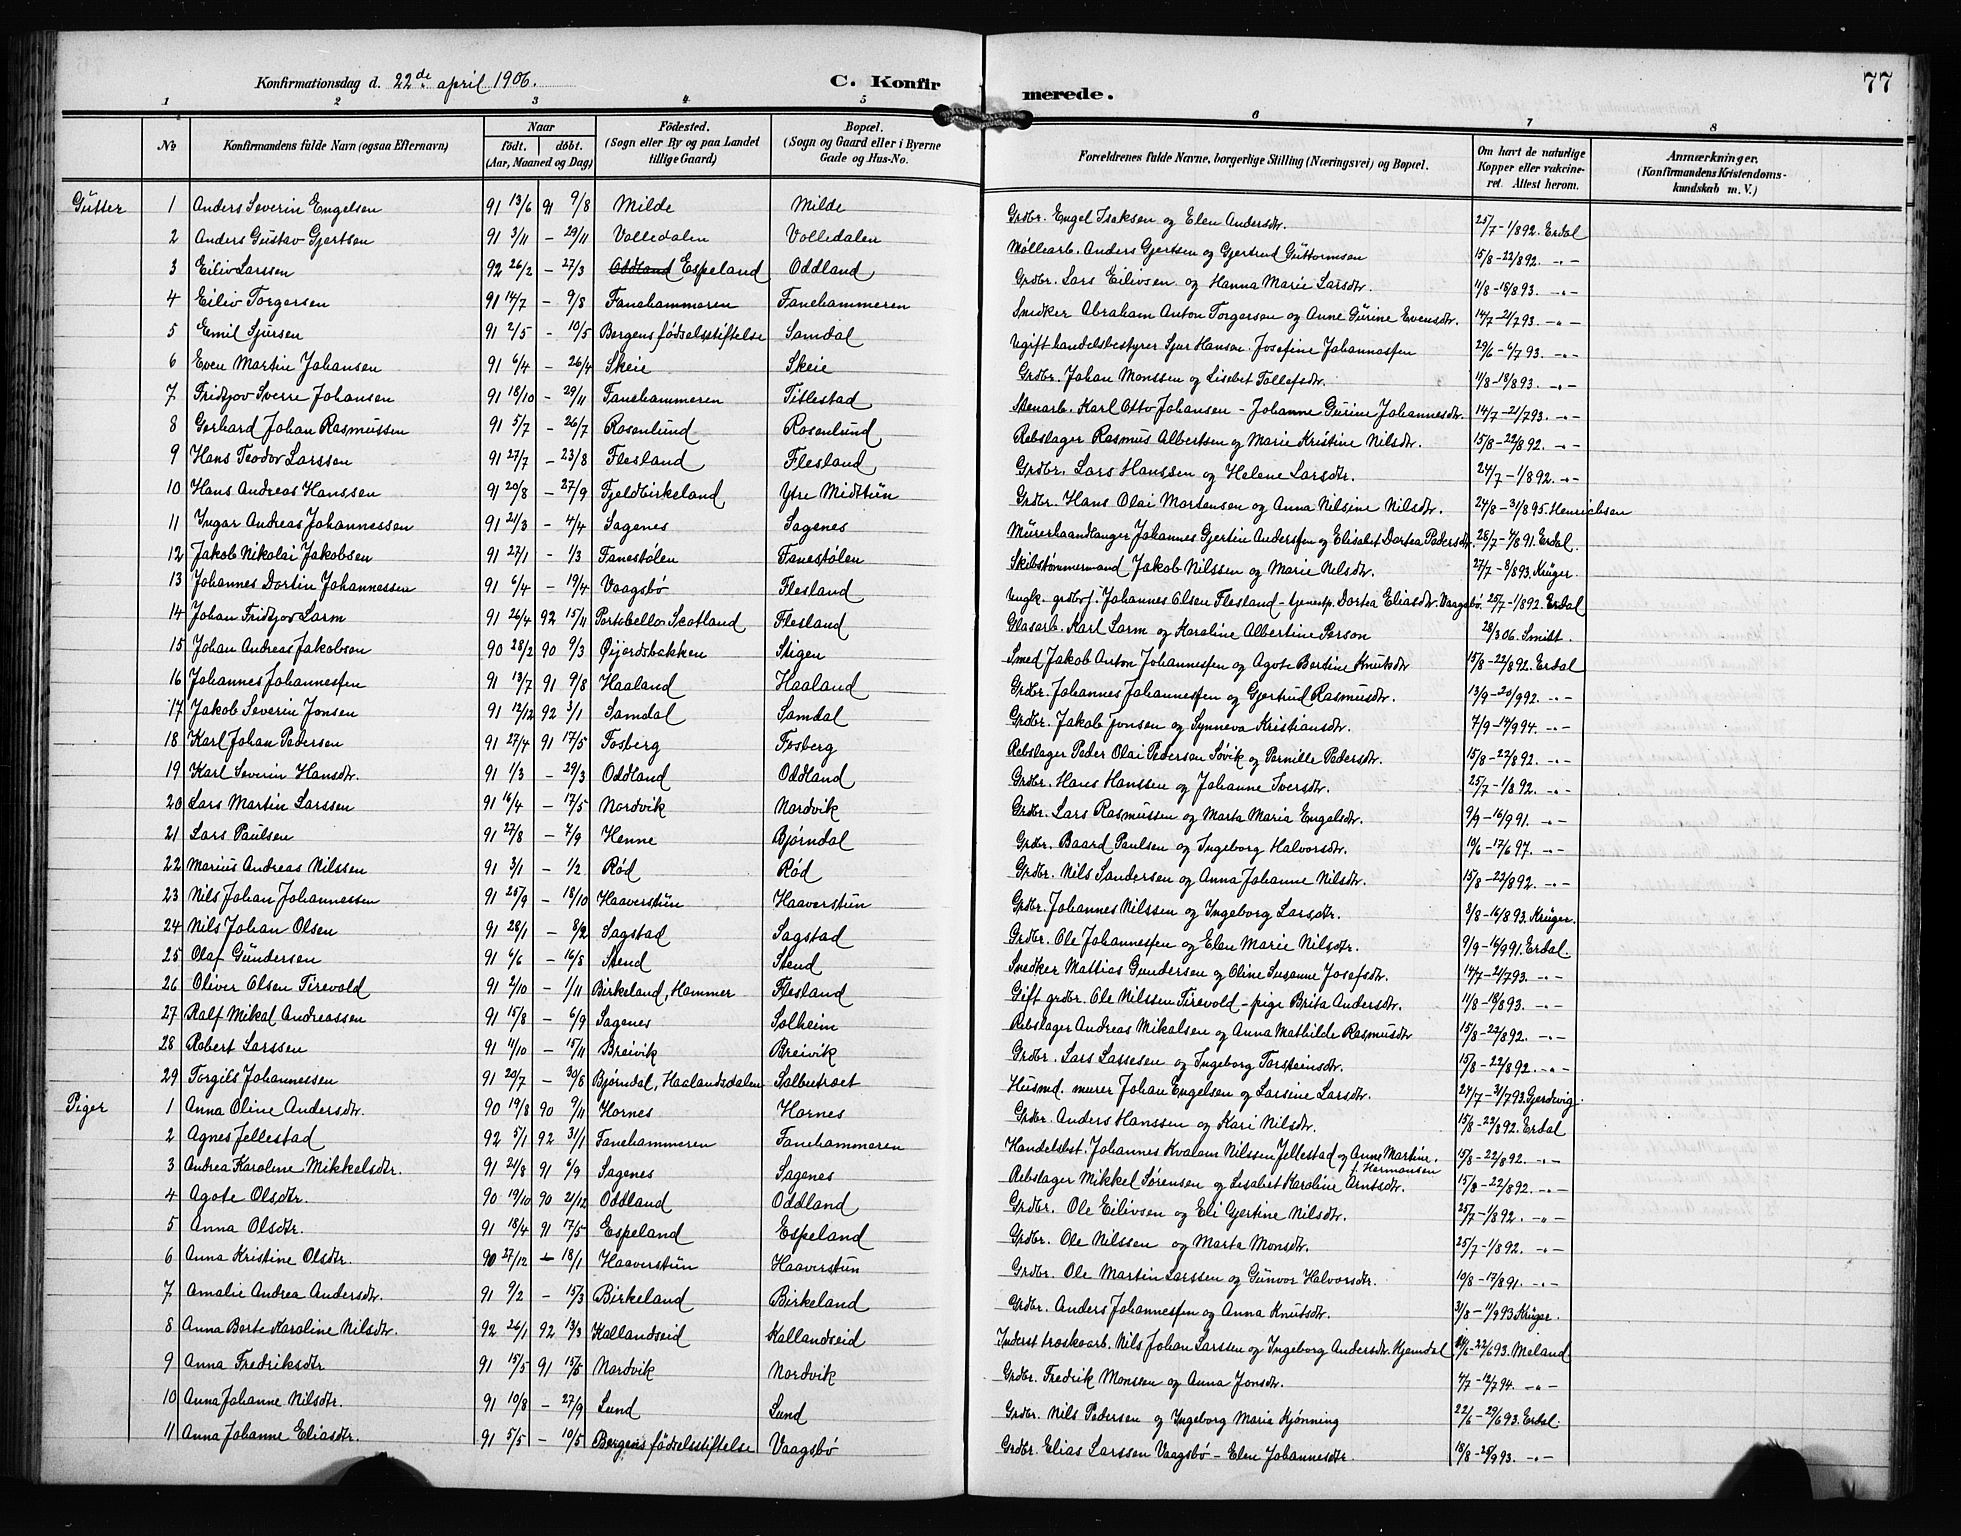 77
Konfirmationsdag d. 22de april 1906.
C. Konfirmerede.
1 2 3 4 5 6 7 8
No Konfirmandens fulde Navn (ogsaa Efternavn) Naar født. døbt. (Aar, Maaned og Dag) Fødested. (Sogn eller By og paa Landet tillige Gaard) Bopæl. (Sogn og Gaard eller i Byerne Gade og Hus-No. Forældrenes fulde Navne, borgerlige Stilling (Næringsvei) og Bopæl. Om havt de naturlige Kopper eller vakcineret. Attest herom. Anmærkninger. (Konfirmandens Kristendomskundskab m. V.)
Gutter 1 Anders Severin Engelsen 91 13/6 91 9/8 Milde Milde Grdbr. Engel Isaksen og Elen Andersdr. 25/7-1/8 92. Erdal
2 Anders Gustav Gjertsen 91 3/11 - 29/11 Volledalen Volledalen Møllearb. Anders Gjertsen og Gjertrud Guttormsen 15/8-22/8 92. -"-
3 Eiliv Larssen 92 26/2 - 27/3 Oddland Espeland Oddland Grdbr. Lars Eilivsen og Hanna Marie Larsdtr. 11/8-18/8 93. -"-
4 Eiliv Torgersen 91 14/7 - 9/8 Fanehammeren Fanehammeren Snedker Abraham Anton Torgersen og Anne Gurine Evensdtr. 14/7-21/7 93. -"-
5 Emil Sjursen 91 2/5 - 10/5 Bergens fødselsstiftelse Samdal Ugift handelsbestyrer Sjur Hansen. Josefine Johannessen 29/6-6/7 93. -"-
6 Even Martin Johansen 91 6/4 - 26/4 Skeie Skeie Grdbr. Johan Monssen og Lisebet Tollefsdtr. 11/8-18/8 93. -"-
7 Fridtjov Sverre Johansen 91 18/10 - 29/11 Fanehammeren Titlestad Stenarb. Karl Otto Johansen - Johanne Gurine Johannesdtr. 14/7-21/7 93. -"-
8 Gerhard Johan Rasmussen 91 5/7 - 26/7 Rosenlund Rosenlund Rebslager Rasmus Albertsen og Marie Kristine Nilsdtr. 15/8-22/8 92. -"-
9 Hans Teodor Larssen 91 27/7 - 23/8 Flesland Flesland Grdbr. Lars Hanssen og Helene Larsdtr. 24/7-1/8 92. -"-
10 Hans Andreas Hanssen 91 20/8 - 27/9 Fjeldbirkeland Ytre Midttun Grdbr. Hans Olai Mortensen og Anna Nilsine Nilsdtr. 24/8-31/8 95. Henrichsen
11 Ingar Andreas Johannessen 91 21/3 - 4/4 Sagenes Sagenes Murerhaandlanger Johannes Gjertin Anderssen og Elisabet Dortea Pedersdtr. 25/7-4/8 91. Erdal.
12 Jakob Nikolai Jakobsen 91 27/1 - 1/3 Fanestølen Fanestølen Skibstømmermand Jakob Nilssen og Marie Nilsdtr. 27/7-8/8 93. Krüger.
13 Johannes Dortin Johannessen 91 6/4 - 19/4 Vaagsbø Flesland Ungk. grdbrs. Johannes Olsen Flesland - tjenestp. Dortea Eliasdtr. Vaagsbø. 25/7-1/8 92. Erdal
14 Johan Fridtjov Larm 91 26/4 92 15/11 Portobello Scotland Flesland Glasarb. Karl Larm og Karoline Albertine Person 28/3 06. Smitt.
15 Johan Andreas Jakobsen 90 28/2 90 9/3 Øijordsbakken Stigen Smed Jakob Anton Johannessen og Agote Bertine Knutsdtr 15/8-22/8 92. Erdal
16 Johannes Johannessen 91 13/7 91 9/8 Haaland Haaland Grdbr. Johannes Johannessen og Gjertrud Rasmusdtr. 13/9-20/9 92. -"-
17 Jakob Severin Jonsen 91 12/12 92 3/1 Samdal Samdal Grdbr. Jakob Jonsen og Synneva Kristiansdtr. 7/9-14/9 94. -"-
18 Karl Johan Pedersen 91 27/4 91 17/5 Fosberg Fosberg Rebslager Peder Olai Pedersen Søvik og Pernille Pedersdtr. 15/8-22/8 92. -"-
19 Karl Severin Hansdtr. 91 1/3 - 29/3 Oddland Oddland Grdbr. Hans Hanssen og Johanne Iversdtr. 25/7-1/8 92. -"-
20 Lars Martin Larssen 91 16/4 - 17/5 Nordvik Nordvik Grdbr. Lars Rasmussen og Marta Maria Engelsdtr. 9/9-16/9 91. -"-
21 Lars Paulsen 91 27/8 - 7/9 Henne Bjørndal Grdbr. Baard Paulsen og Ingeborg Halvorsdtr. 10/6-17/6 97. -"-
22 Marius Andreas Nilssen 91 3/1 - 1/2 Rød Rød Grdbr. Nils Sandersen og Anna Johanne Nilsdtr. 15/8-22/8 92. -"-
23 Nils Johan Johannessen 91 25/9 - 18/10 Haaverstun Haaverstun Grdbr. Johannes Nilssen og Ingeborg Larsdtr. 3/8-16/8 93. Krüger.
24 Nils Johan Olsen 91 28/1 - 8/2 Sagstad Sagstad Grdbr. Ole Johannessen og Elen Marie Nilsdtr. 9/9-16/9 91. Erdal.
25 Olaf Gundersen 91 6/6 - 16/8 Stend Stend Snedker Mattias Gundersen og Oline Susanne Josefsdtr. 14/7-21/7 93. -"-
26 Oliver Olsen Tirevold 91 2/10 - 1/11 Birkeland, Hammer Flesland Gift grdbr. Ole Nilssen Tirevold - pige Brita Andersdtr. 11/8-18/8 93. -"-
27 Ralf Mikal Andreassen 91 15/8 - 6/9 Sagenes Solheim Rebslager Andreas Mikalsen og Anna Mathilde Rasmusdtr 15/8-22/8 92. -"-
28 Robert Larssen 91 4/10 - 15/11 Breivik Breivik Grdbr. Lars Lassesen og Ingeborg Torsteinsdtr. 15/8-22/8 92. -"-
29 Torgils Johannessen 91 20/7 - 30/8 Bjørndal, Haalandsdalen Solbutræet Husmd. murer Johan Engelsen og Larsine Larsdtr. 24/7-31/7 93. Gjerdevig.
Piger 1 Anna Oline Andersdtr. 90 19/8 90 9/11 Hornes Hornes Grdbr. Anders Hanssen og Kari Nilsdtr. 15/8-22/8 92. Erdal
2 Agnes Jellestad 92 5/1 92 31/1 Fanehammeren Fanehammeren Handelsbst. Johannes Kvalam Nilssen Jellestad og Anne Martine Hermansen 15/8-22/8 92. -"-
3 Andrea Karoline Mikkelsdtr. 91 21/8 91 6/9 Sagenes Sagenes Rebslager Mikkel Sørensen og Lisabet Karoline Arntsdtr. 15/8-22/8 92. -"-
4 Agote Olsdtr. 90 19/10 90 21/12 Oddland Oddland Grdbr. Ole Eilivsen og Eli Gjertine Nilsdtr. 25/7-1/8 92. -"-
5 Anna Olsdtr. 91 18/4 91 17/5 Espeland Espeland Grdbr. Ole Nilssen og Marta Monsdtr. 25/7-1/8 92. -"-
6 Anna Kristine Olsdtr. 90 27/12 - 18/1 Haaverstun Haaverstun Grdbr. Ole Martin Larssen og Gunvor Halvorsdtr. 10/8-17/8 91. -"-
7 Amalie Andrea Andersdtr. 91 9/2 - 15/3 Birkeland Birkeland Grdbr. Anders Johannessen og Anna Knutsdtr. 3/8-11/9 93 Krüger.
8 Anna Berte Karoline Nilsdtr. 92 26/1 92 13/3 Kallandseid Kallandseid Inderst træskoarb. Nils Johan Larssen og Ingeborg Andersdtr. Hjemdal -22/6 93. Meland
9 Anna Fredriksdtr 91 15/5 91 15/6 Nordvik Nordvik Grdbr. Fredrik Monsen og Anna Jonsdtr. 4/7-12/7 94. -"-
10 Anna Johanne Nilsdtr. 91 10/8 - 27/9 Lund Lund Grdbr. Nils Pedersen og Ingeborg Maria Kjønning 22/6-29/6 93. Erdal.
11 Anna Johanne Eliasdtr. 91 5/5 - 10/5 Bergens fødselsstiftelse Vaagsbø Grdbr. Elias Larssen Vaagsbø - Elen Johannesdtr. 18/8-25/9 93. -"-